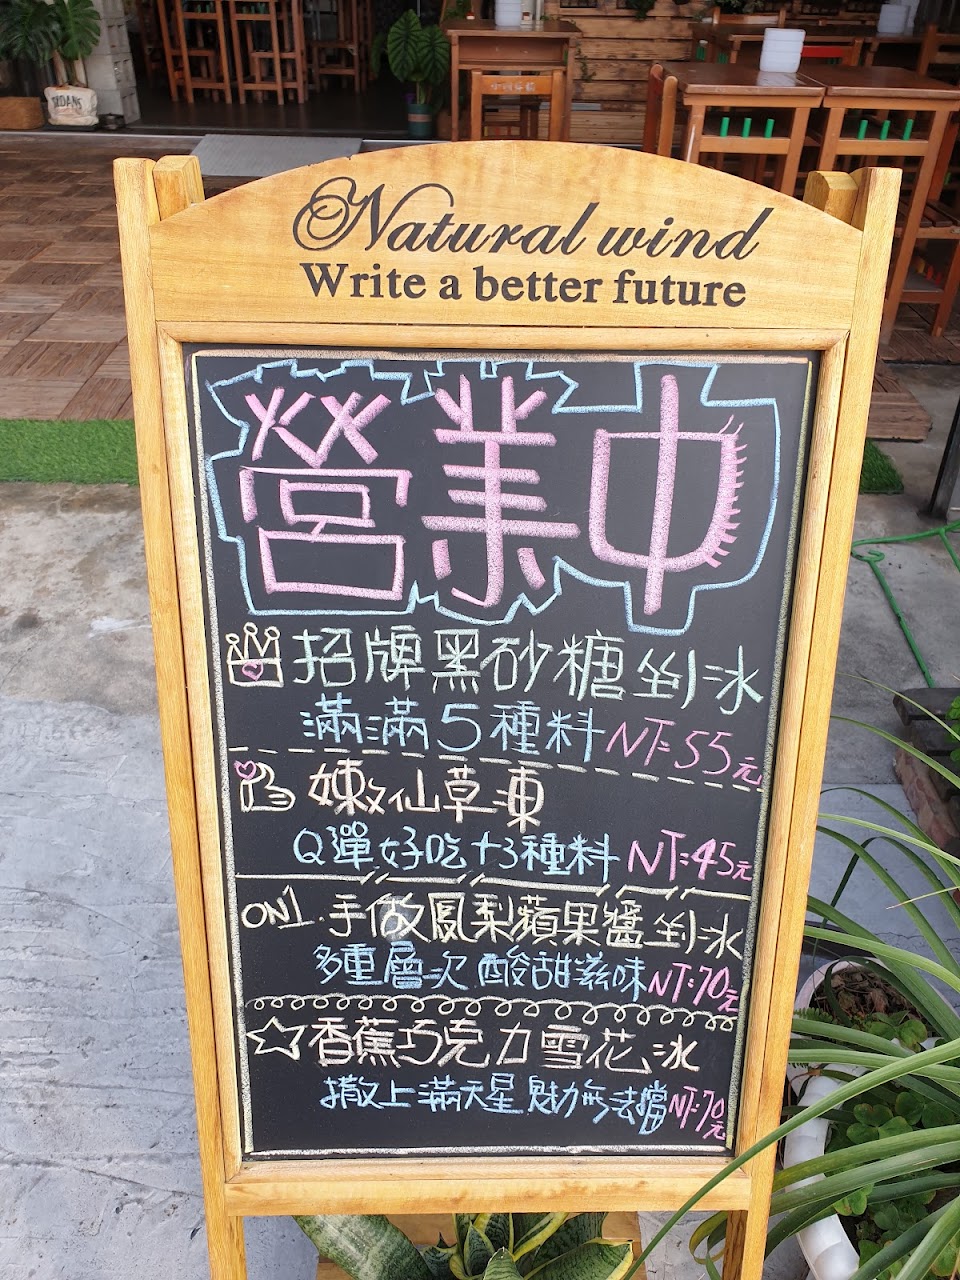 Natural wind
Write a better future
營業中
招牌黑砂糖剉冰
滿滿5種料NT:55元
嫩仙草凍
Q彈好吃+3種料 NT:45元
ON1.手做鳳梨蘋果醬剉冰
多重層次 酸甜滋味NT:70元
香蕉巧克力雪花冰
撒上滿天星 魅力無法擋NT:70元